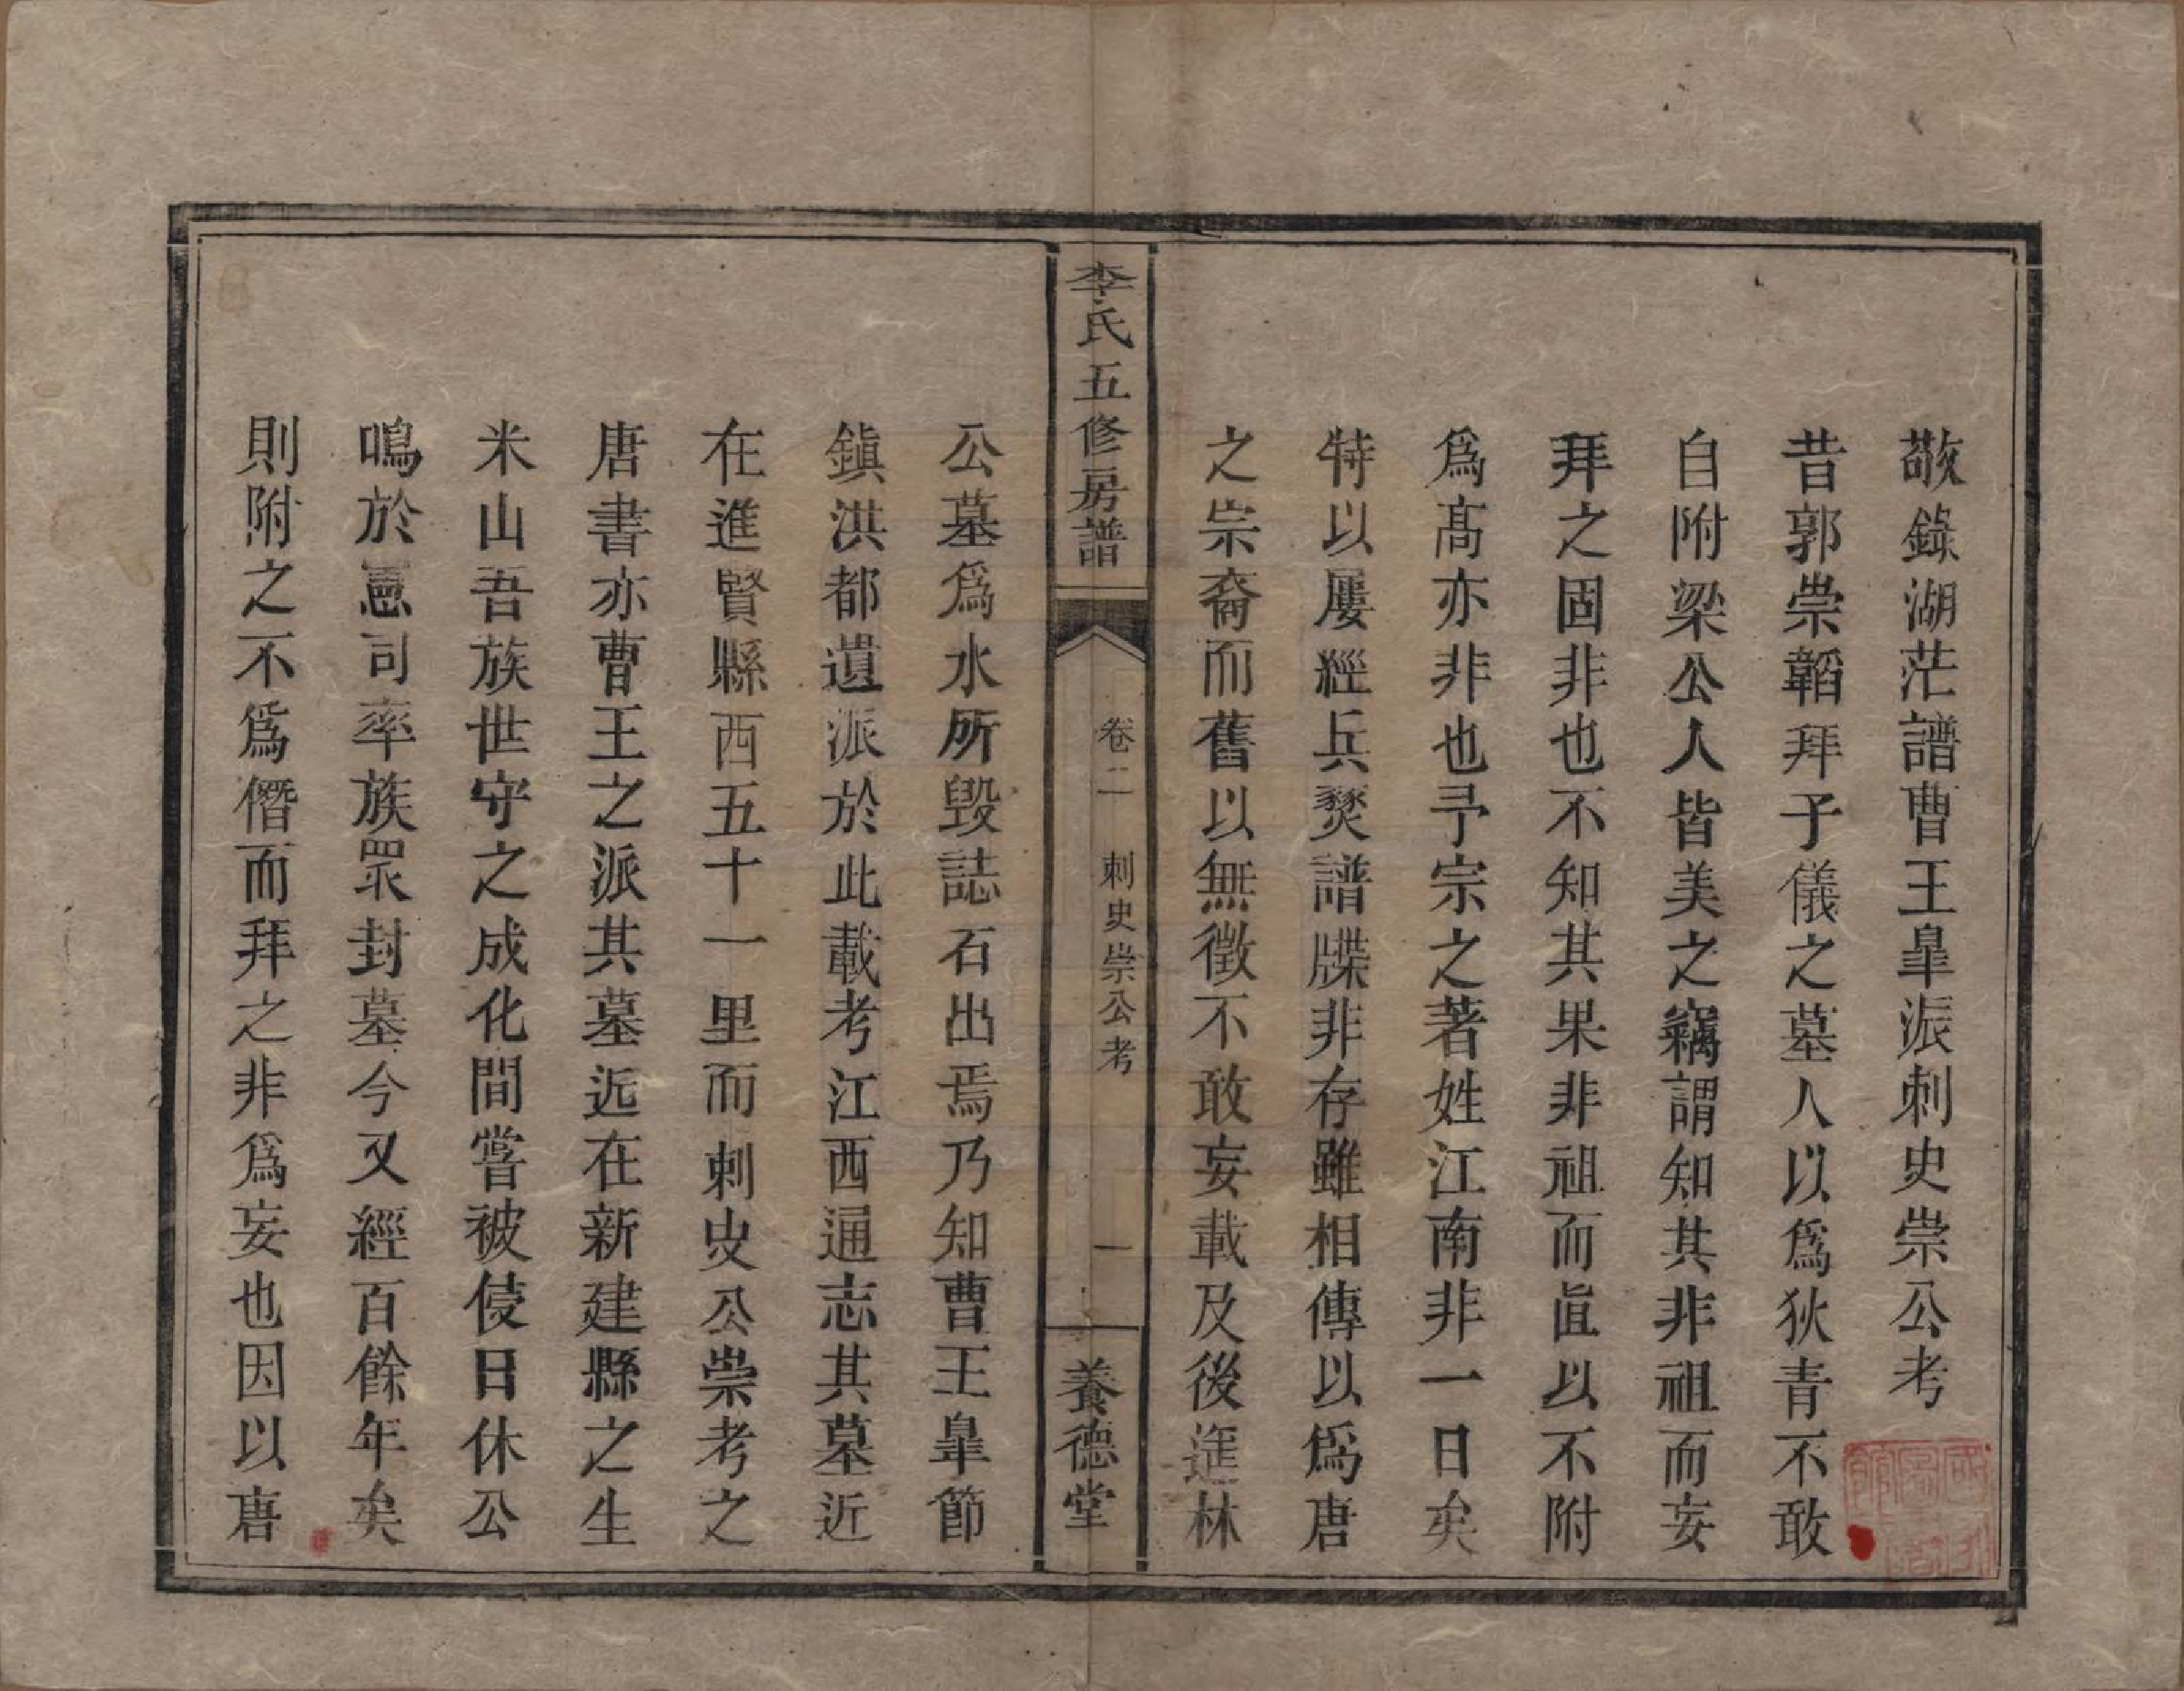 敬錄湖茫譜曹王皐派刺史崇公考
昔郭崇韜拜子儀之墓人以爲狄青不敢
自附梁公人皆美之竊謂知其非祖而妄
拜之固非也不知其果非祖而眞以不附
爲髙亦非也予宗之著姓江南非一日矣
特以屢經兵燹譜牒非存雖相傳以爲唐
之宗裔而舊以無徵不敢妄載及後進林
李氏五修房譜
卷二
刺史崇公考
一
養德堂
公墓爲水所毁誌石出焉乃知曹王皐節
鎮洪都遺派於此載考江西通志其墓近
在進賢縣西五十一里而刺史公崇考之
唐書亦曹王之派其墓近在新建縣之生
米山吾族世守之成化間嘗被侵日休公
鳴於憲司率族眾封墓今又經百餘年矣
則附之不爲僭而拜之非爲妄也因以唐